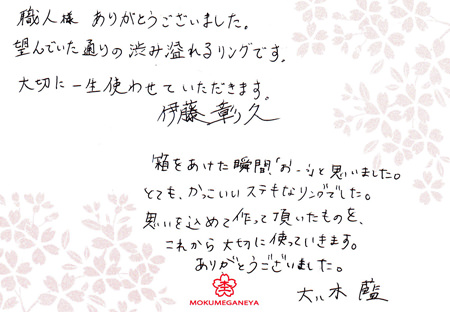 職人様 ありがとうございました。
望んでいた通りの渋み溢れるリングです。
大切に一生使わせていただきます。
伊藤 彰久
箱をあけた瞬間、「お〜」と思いました。
とても、かっこいいステキなリングでした。
思いを込めて作って頂いたものを、
これから大切に使っていきます。
ありがとうございました。
木 藍
MOKUMEGANEYA